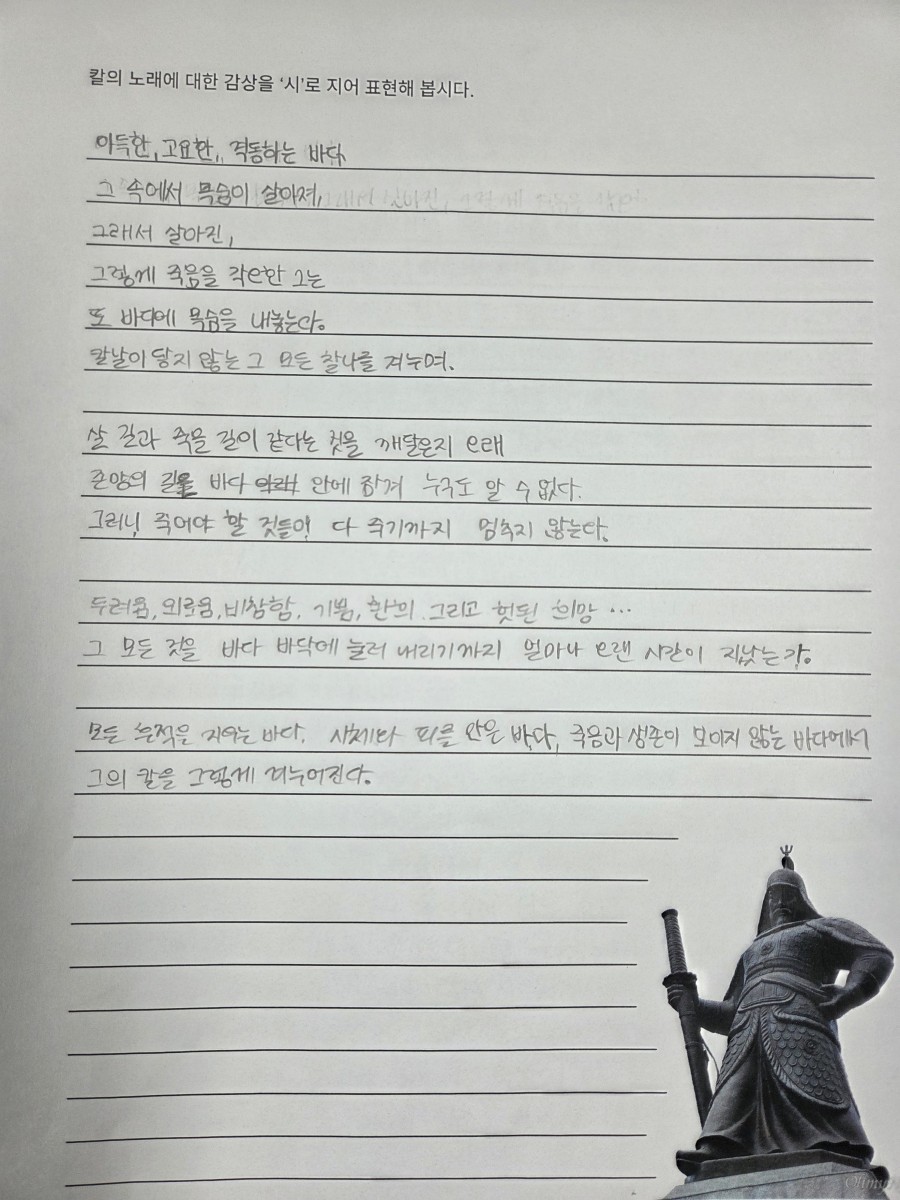 칼의 노래에 대한 감상을 ‘시’로 지어 표현해 봅시다.
아득한, 고요한, 격동하는 바다
그 속에서 목숨이 살아져,
그래서 살아진,
그렇게 죽음을 각오한 그는
또 바다에 목숨을 내놓는다.
칼날이 닿지 않는 그 모든 찰나를 겨누며.
살 길과 죽을 길이 같다는 것을 깨달은지 오래
존망의 길은 바다 아래 안에 잠겨 누구도 알 수 없다.
그러니, 죽어야 할 것들이 다 죽기까지 멈추지 않는다.
두려움, 외로움, 비참함, 기쁨, 환희 그리고 헛된 희망 ...
그 모든 것을 바다 바닥에 눌러 내리기까지 얼마나 오랜 시간이 지났는가.
모든 흔적을 지우는 바다. 시체와 피를 안은 바다, 죽음과 생존이 보이지 않는 바다에서
그의 칼을 그렇게 겨누어진다.